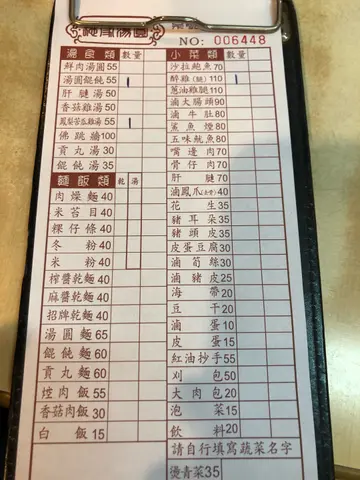 NO: 006448
湯食類 數量
鮮肉湯圓55
湯圓餛飩55
肝腱湯50
香菇雞湯50
鳳梨苦瓜雞湯55
佛跳牆100
貢丸湯30
餛飩湯35
麵飯類 乾 湯
肉燥麵40
米苔目40
粿仔條40
冬粉40
米粉40
榨醬乾麵40
麻醬乾麵40
招牌乾麵40
湯圓麵65
餛飩麵60
貢丸麵60
焢肉飯55
香菇肉飯30
白飯15
小菜類 數量
沙拉鮑魚70
醉雞(腿)110
蔥油雞腿110
滷大腸頭90
滷牛肚80
鯊魚煙80
五味魷魚80
嘴邊肉70
骨仔肉70
肝腱70
滷鳳爪
花生35
豬耳朵35
豬頭皮35
皮蛋豆腐30
滷筍絲30
滷豬皮25
海帶20
豆干20
滷蛋10
皮蛋15
紅油抄手55
刈包50
大肉包20
泡菜15
飲料20
請自行填寫蔬菜名字
燙青菜35